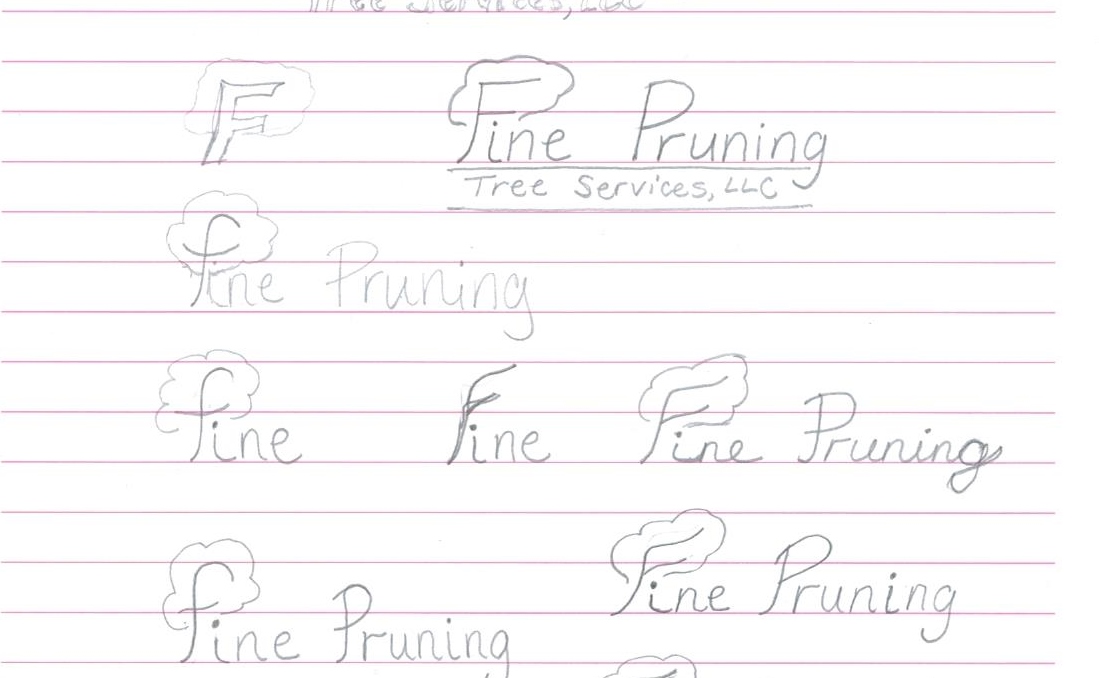 Tree Services, LLC
F Fine Pruning
Tree Services, LLC
fine Pruning
fine Fine Fine Pruning
Fine Pruning
fine Pruning